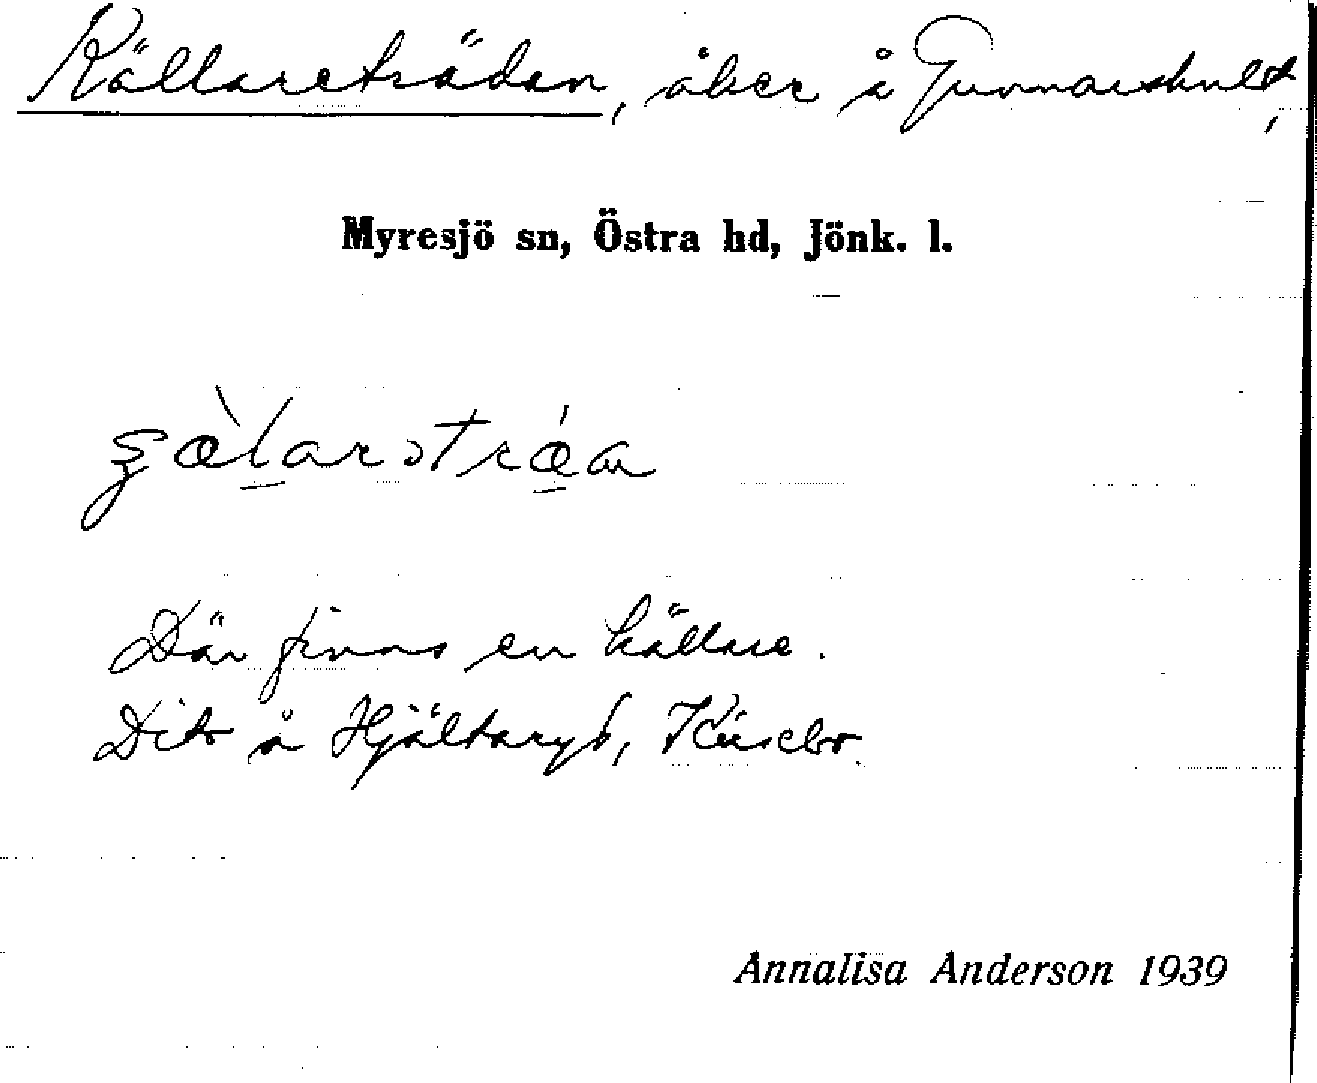 Källareträdan, åker å Gunnarshult,
Myresjö sn, Östra hd, Jönk. l.
Där finns en källare.
Dito å Hjältaryd,
Annalisa Anderson 1939